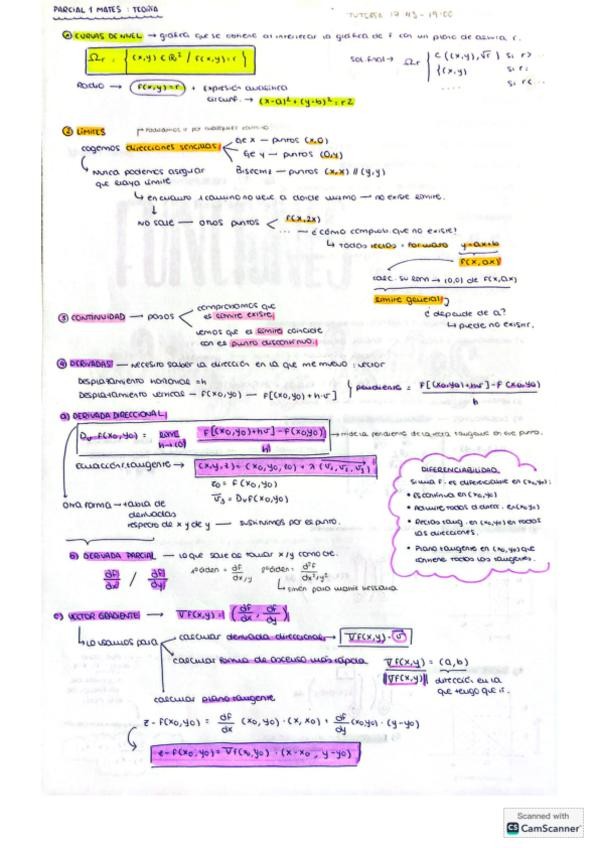 PARCIAL 1 MATES : TEORIA
TUTORIA 17:45 - 19:00
① CURVAS DE NIVEL → gráfica que se obtiene al intersecar la gráfica de f con un plano de altura r.
Ωr = { (x,y) ∈ ℝ² / f(x,y) = r }
Radio → f(x,y)=r + expresión analítica
circunf. → (x-a)²+(y-b)² = r2
② LÍMITES
cogemos direcciones sencillas
Eje X — puntos (x,0)
Eje Y — puntos (0,y)
Bisectriz — puntos (x,x) // (y,y)
↳ Nunca podemos asegurar que haya límite
↳ en cuanto 1 camino no lleve a donde mismo — no existe límite.
No sale — otros puntos
f(x,2x)
... — ¿cómo compruebo que no existe?
↳ todas rectas + formato y=ax+b
f(x,ax)
(0,0) de f(x,ax)
límite general
¿ depende de a?
↳ puede no existir.
③ CONTINUIDAD → pasos
comprobamos que el límite existe
vemos que el límite coincide con el punto discontinuo.
④ DERIVADAS — necesito saber la dirección en la que me muevo : vector
Desplazamiento horizontal = h
Desplazamiento vertical — f(x0,y0) — f[(x0,y0)+h·v]
pendiente = f[(x0,y0)+hv]-f(x0,y0) / h
a) DERIVADA DIRECCIONAL
Dv f(x0,y0) = lim h→0 f[(x0,y0)+hv]-f(x0,y0) / h
→ mide la pendiente de la recta tangente en ese punto.
ecuación tangente → (x,y,z) = (x0,y0,z0) + λ (v1, v2, v3)
z0 = f(x0,y0)
v3 = Dv f(x0,y0)
Otra forma → tabla de derivadas respecto de x y de y — sustituimos por el punto.
DIFERENCIABILIDAD
Si una f. es diferenciable en (x0,y0):
• Es continua en (x0,y0)
• Admite todas d.direcc. en (x0,y0)
• Rectas tang. en (x0,y0) en todas las direcciones.
• Plano tangente en (x0,y0) que contiene todas las tangentes.
b) DERIVADA PARCIAL — lo que sale de tomar x/y como cte.
df/dx / df/dy
1ºorden = df/dx,y 2ºorden = d²f/dx²,y²
↳ sirven para matriz hessiana
c) VECTOR GRADIENTE → ∇f(x,y) = (df/dx , df/dy)
↳ lo usamos para
calcular derivada direccional → ∇f(x,y) · v
calcular forma de ascenso más rápida
∇f(x,y) = (a,b)
||∇f(x,y)||
dirección en la que tengo que ir.
calcular plano tangente
z - f(x0,y0) = df/dx (x0,y0) · (x,x0) + df/dy (x0,y0) · (y-y0)
z - f(x0,y0) = ∇f(x0,y0) · (x-x0 , y-y0)
Scanned with
CS CamScanner